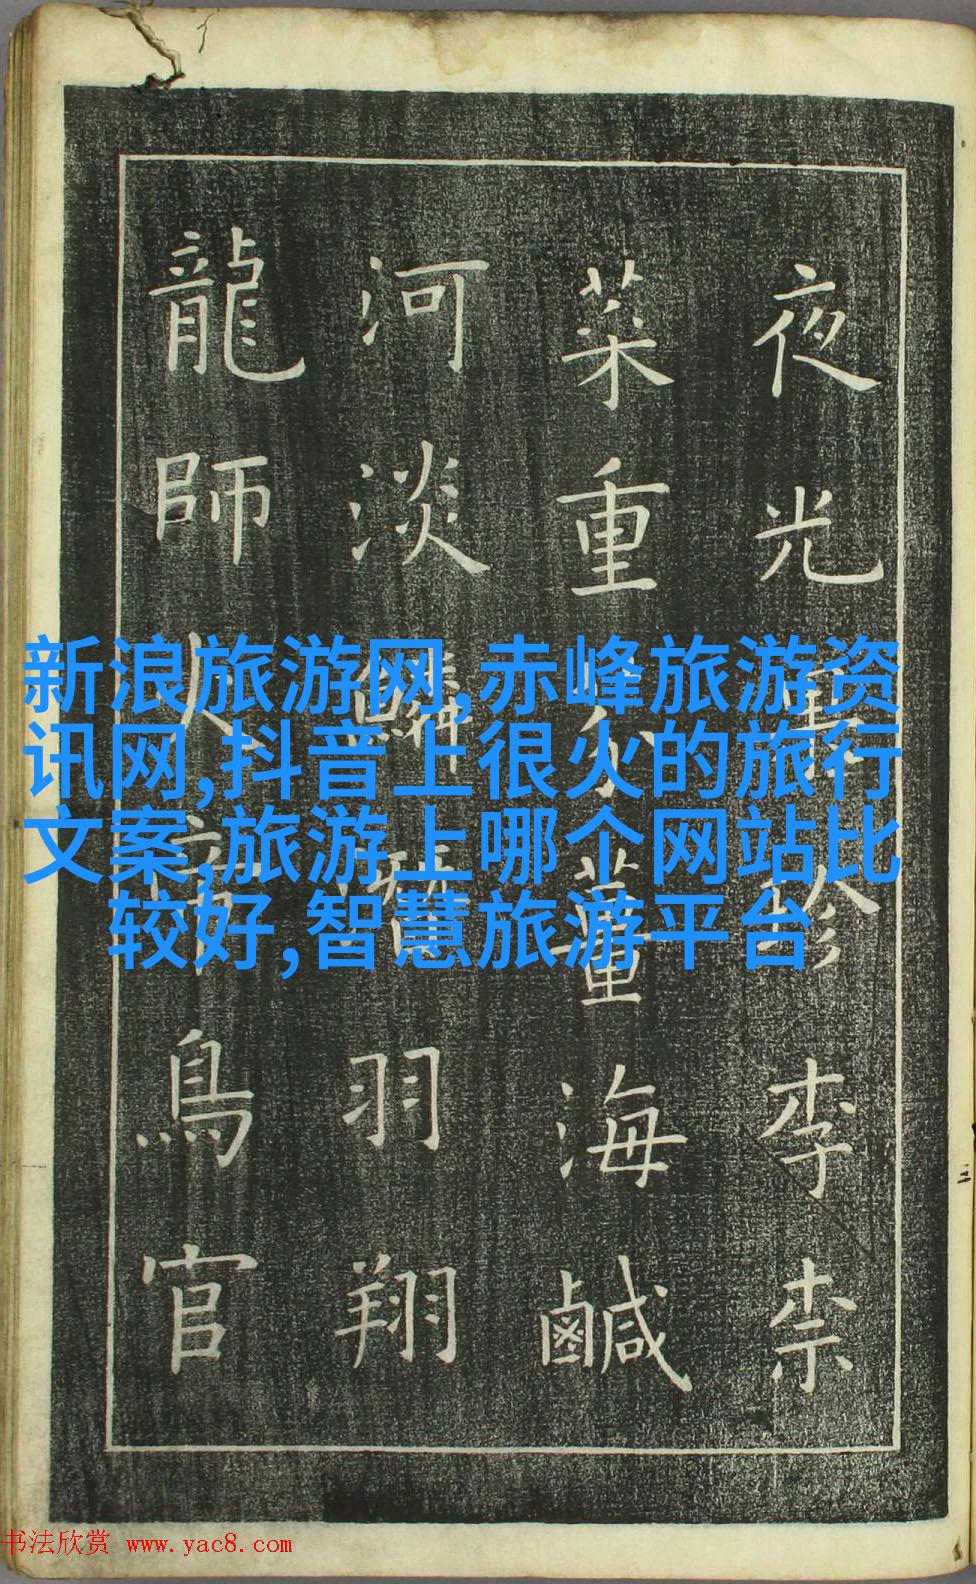 夜光珍李柰
菜重芥薑海鹹
河淡鱗潛羽翔
龍師火帝鳥官
新浪旅游网,赤峰旅游资
讯网,抖音上很火的旅行
文案,旅游上哪个网站比
较好,智慧旅游平台
书法欣赏 www.yac8.com